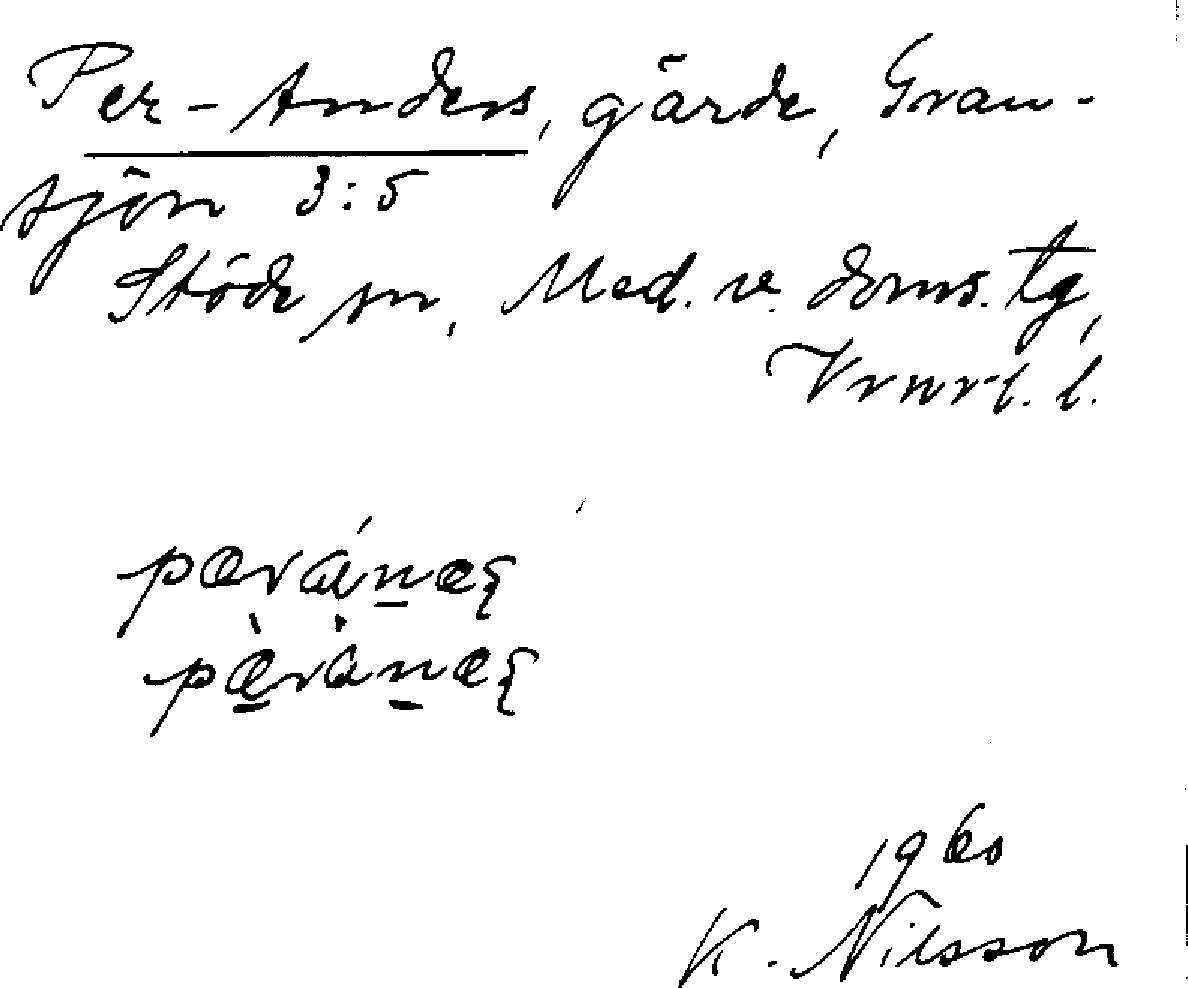 Per-Anders, gärde, Gran-
sjön 3:5
Stöde sn, Med. v. doms. tg,
Vrnrl. l.
pæránæș
pæ̠̀ràn̠æș
1960
K. Nilsson